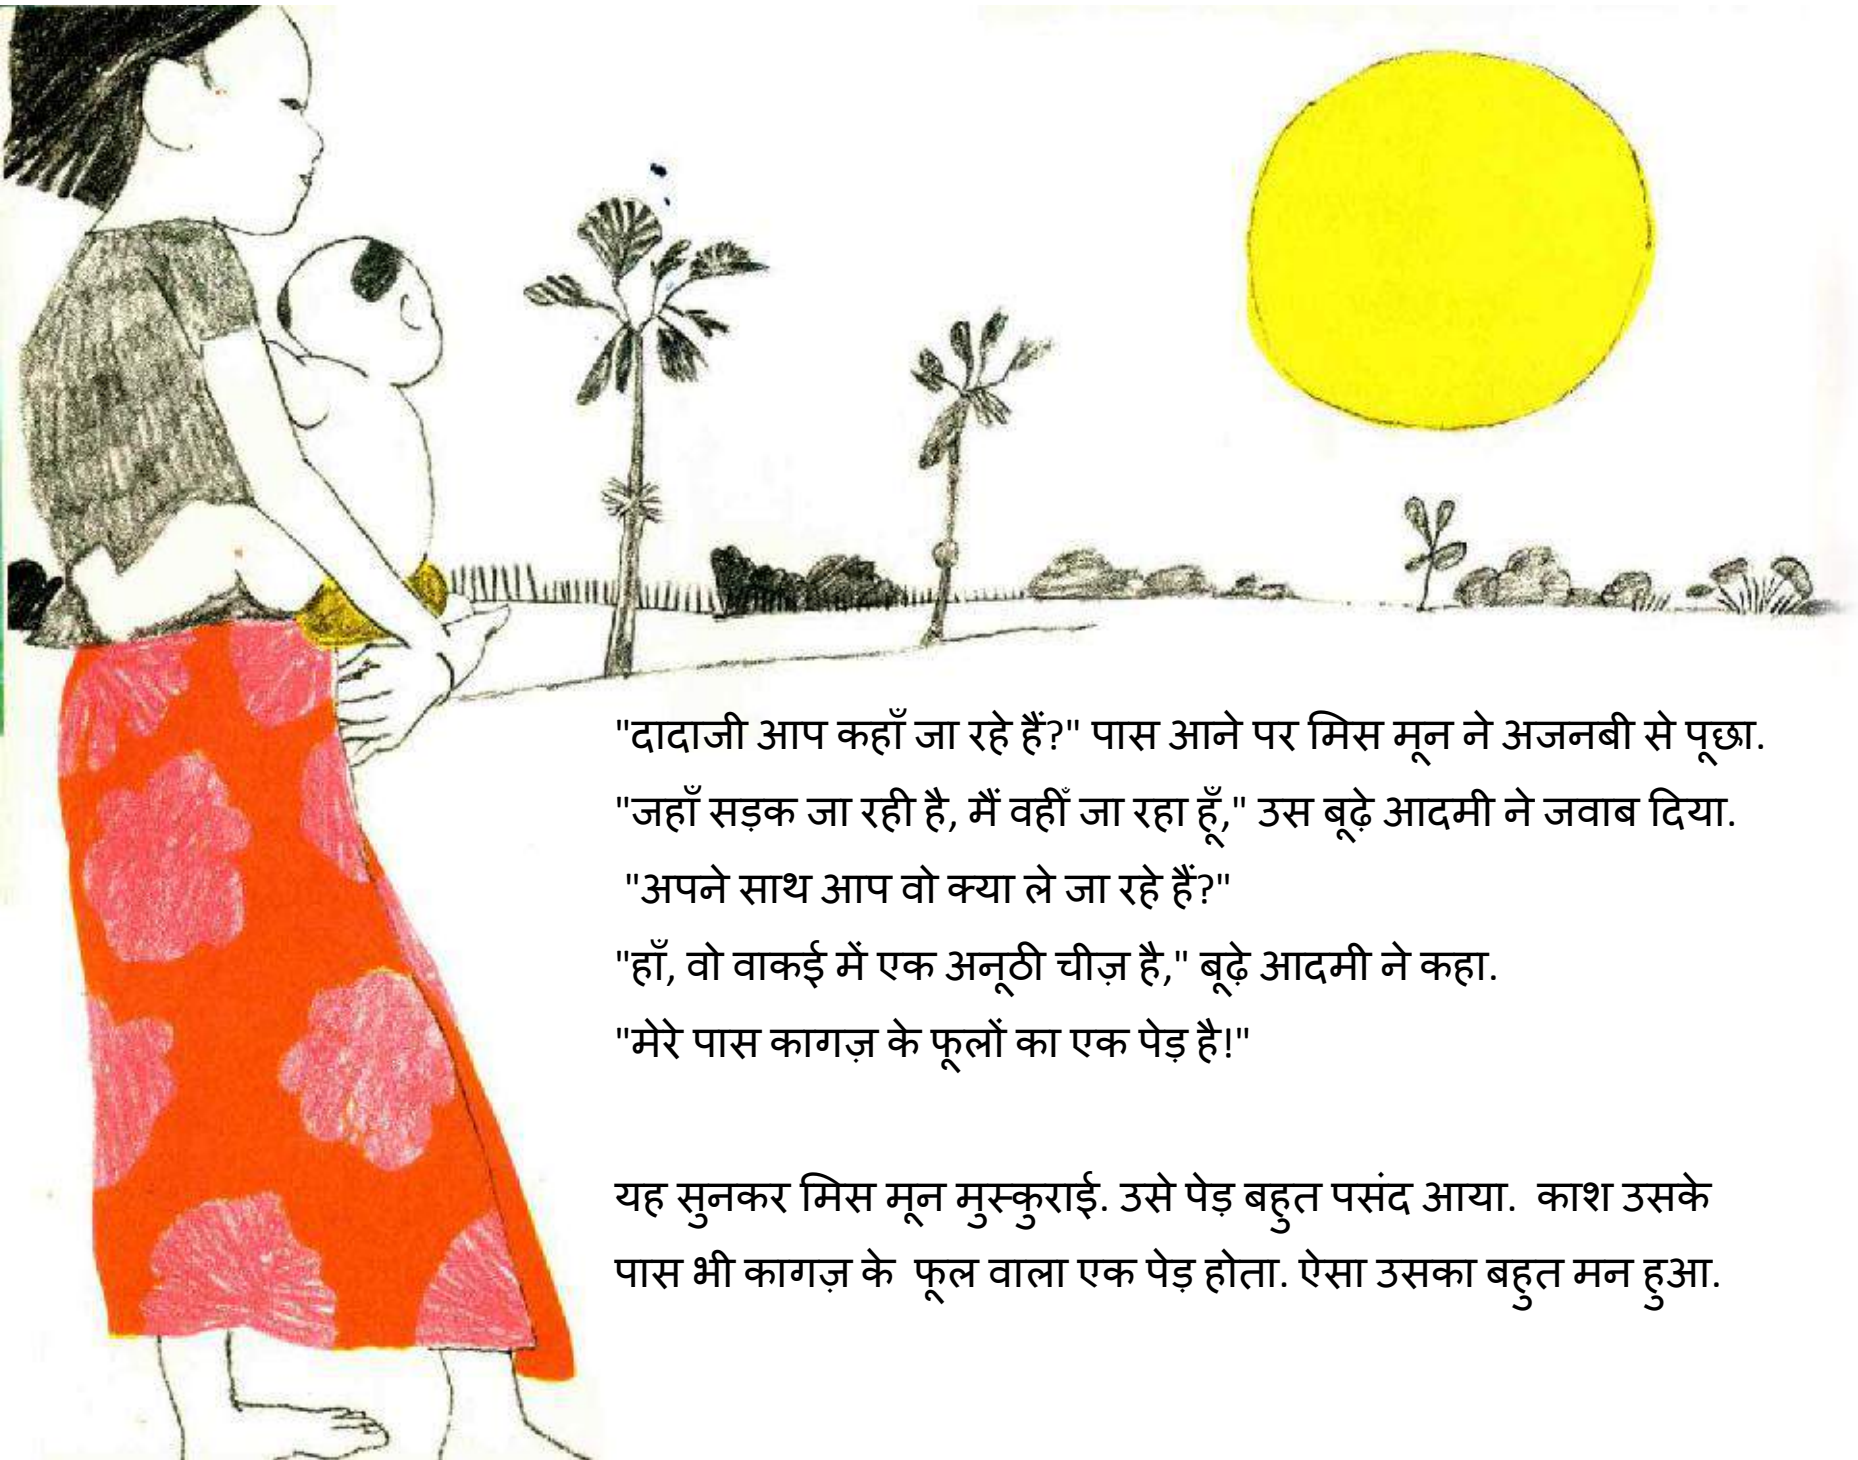 "दादाजी आप कहाँ जा रहे हैं?" पास आने पर मिस मून ने अजनबी से पूछा.
"जहाँ सड़क जा रही है, मैं वहीँ जा रहा हूँ," उस बूढ़े आदमी ने जवाब दिया.
"अपने साथ आप वो क्या ले जा रहे हैं?"
"हाँ, वो वाकई में एक अनूठी चीज़ है," बूढ़े आदमी ने कहा.
"मेरे पास कागज़ के फूलों का एक पेड़ है!"
यह सुनकर मिस मून मुस्कुराई. उसे पेड़ बहुत पसंद आया. काश उसके
पास भी कागज़ के फूल वाला एक पेड़ होता. ऐसा उसका बहुत मन हुआ.